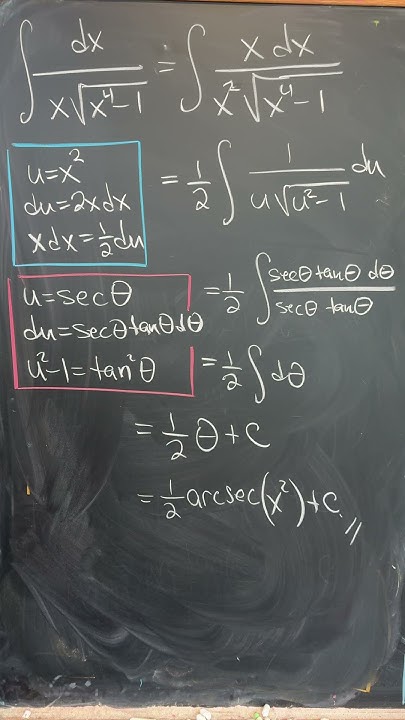 ∫ dx / (x√(x⁴-1)) = ∫ x dx / (x²√(x⁴-1))
u=x²
du=2xdx
xdx=½du
= ½ ∫ 1 / (u√(u²-1)) du
u=secθ
du=secθtanθdθ
u²-1=tan²θ
= ½ ∫ secθtanθ dθ / (secθ tanθ)
= ½ ∫ dθ
= ½ θ+c
= ½ arcsec(x²)+c //